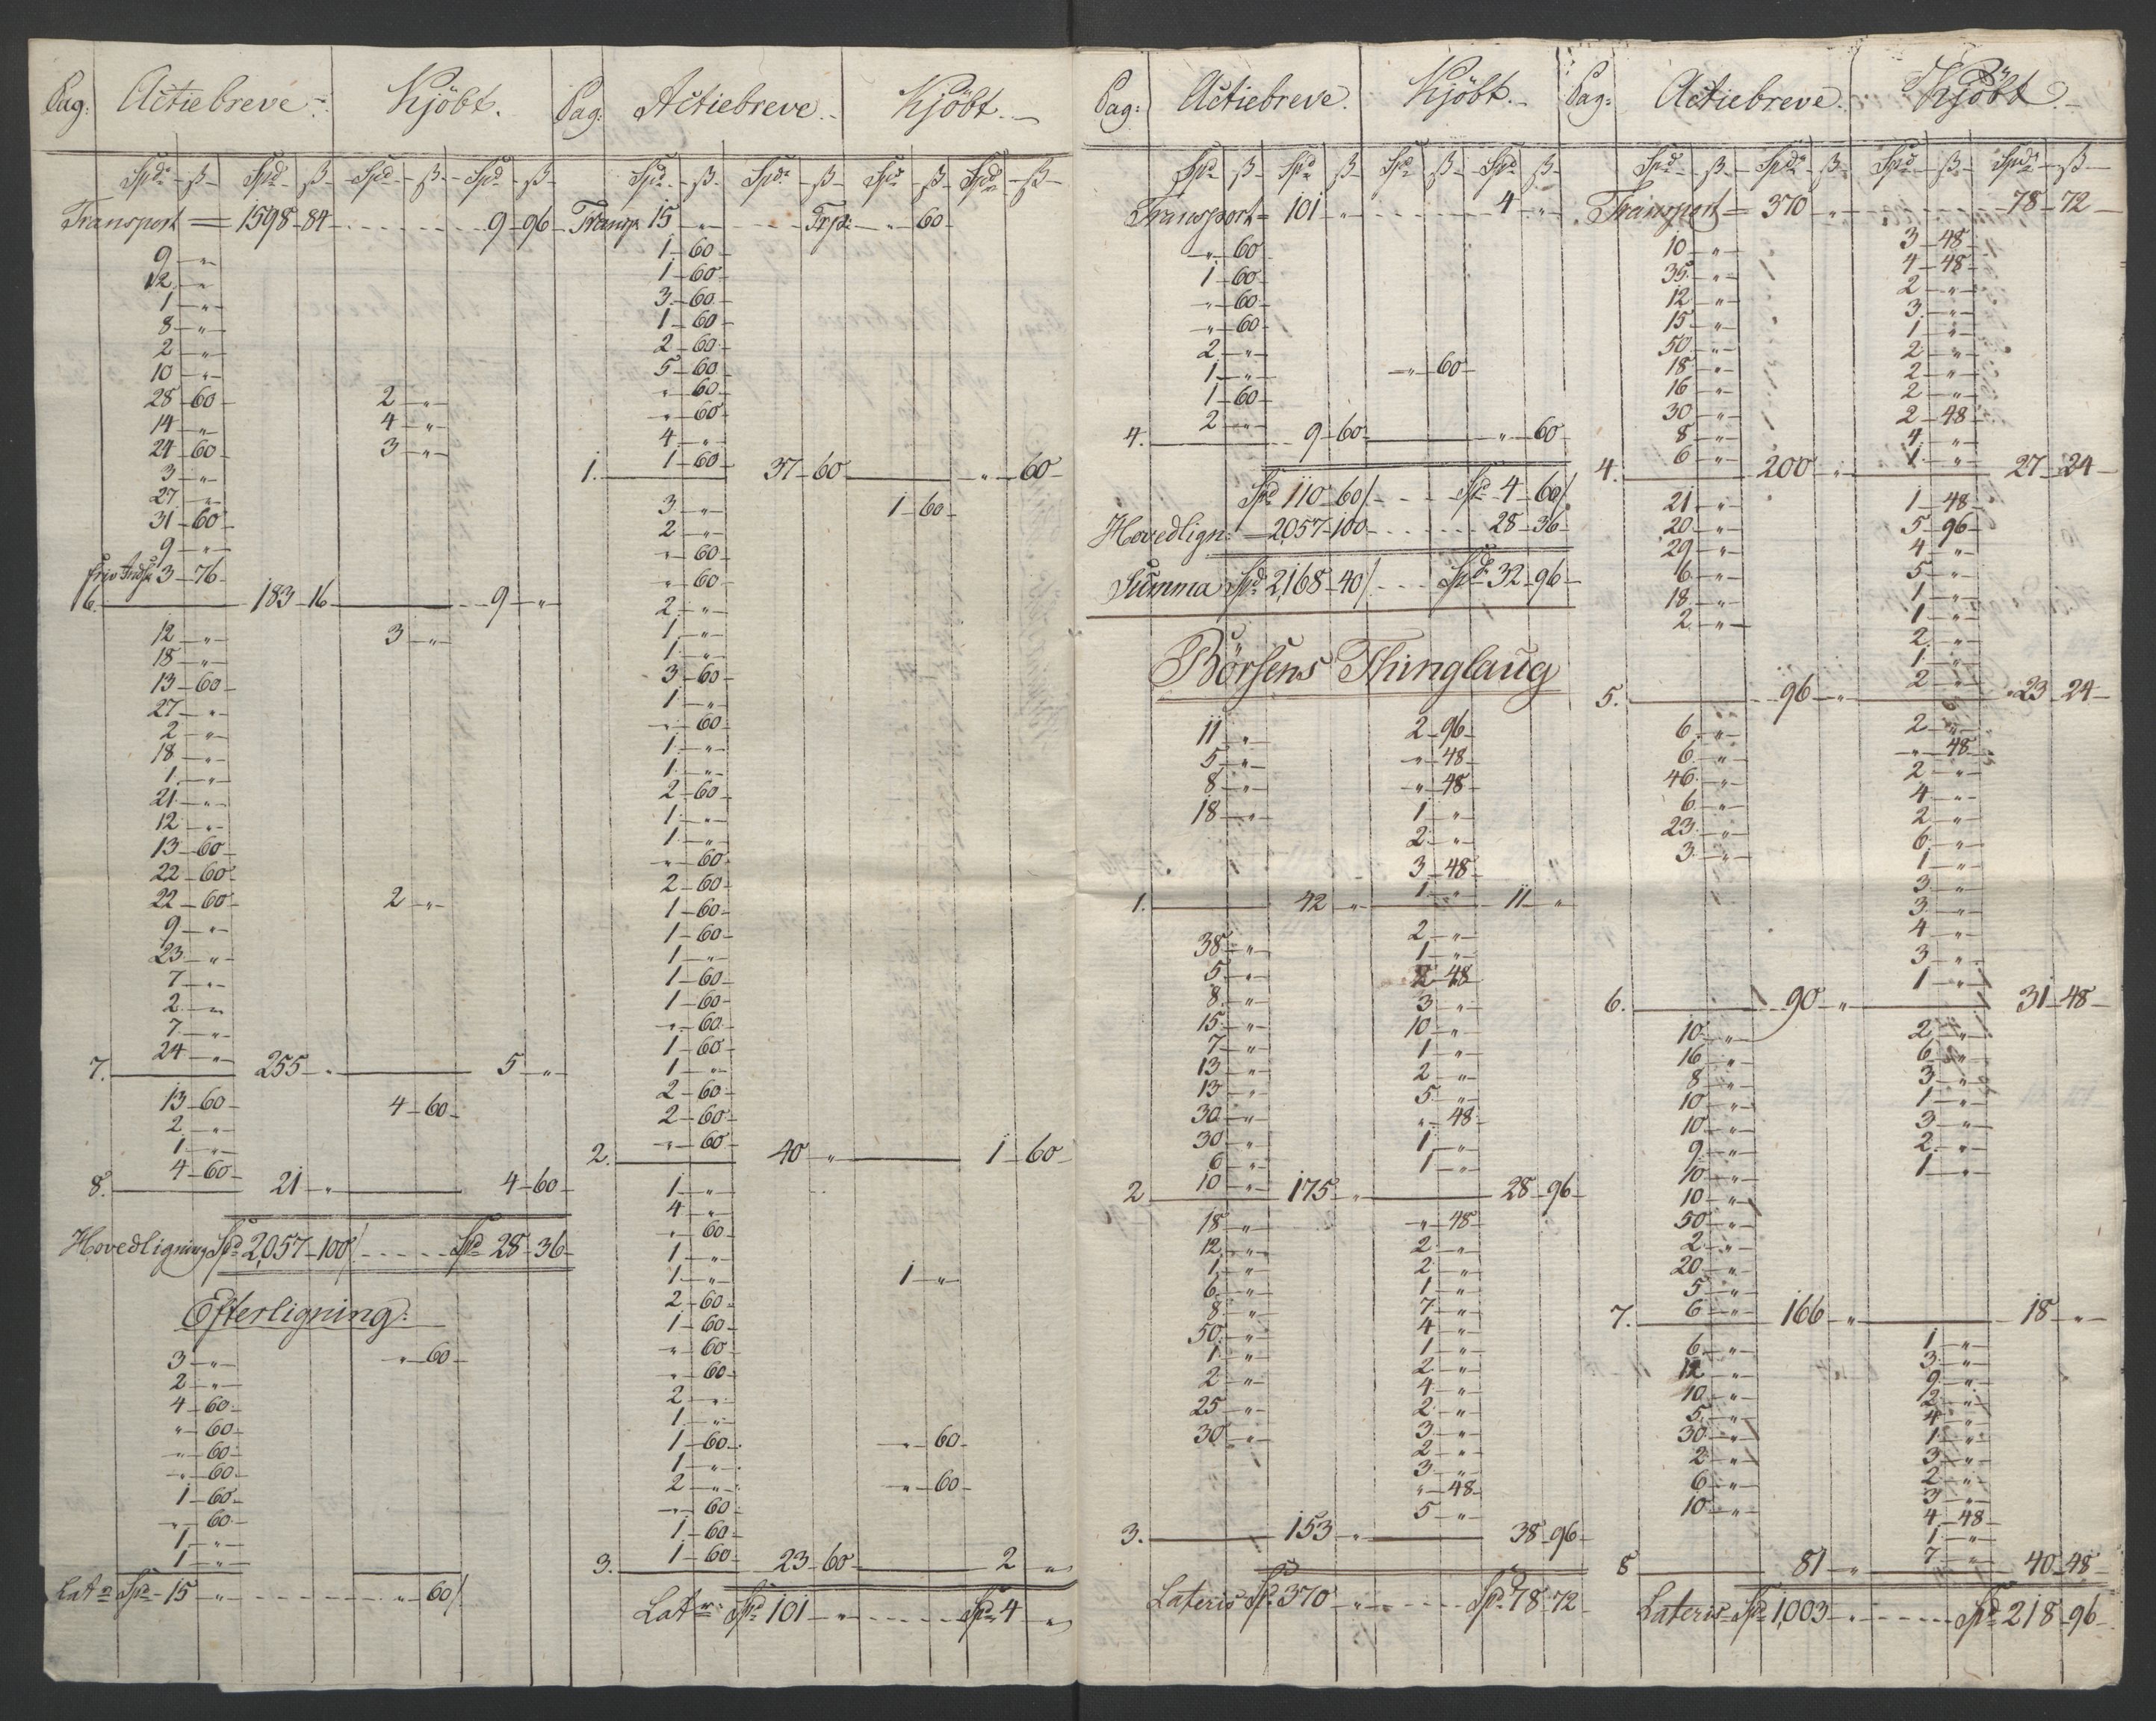 Pag: Actiebreve. Kjöbt.
Spd. ß Spd. ß Spd ß Spd ß
Transport = 1598-84 - - - 9-96
9 - "
12 - "
1 - "
8 - "
2 - "
10 - "
28-60 2 - "
14 - " 4 - "
24-60 3 - "
3 - "
27 - "
31-60
9 - "
3-76
6. 183-16 9 - "
12 - " 3 - "
18 - "
13-60
27 - "
2 - "
18 - "
1 - "
21 - "
12 - "
13-60
22-60
22-60 2 - "
9 - "
23 - "
7 - "
2 - "
7 - "
24 - "
7. 255 - " 5 - "
13-60 4-60
2 - "
1 - "
4-60
8. 21 - " 4-60
Hovedligning Spd 2,057-100/ - - - Spd 28-36
Efterligning:
3 - " " - 60
2 - "
4-60
" - 60
" - 60
" - 60
1-60
" - 60
1 - "
1 - "
Lat Spd 15 - " - - - " - 60/
Pag: Actiebreve. Kjöbt.
Spd. ß Spd. ß Spd ß Spd ß
Transp. 15 - " - - - Trp: " - 60
1-60
1-60
3-60
1-60
2-60
5-60
" - 60
" - 60
4 - "
1-60
1. 37-60 " - 60
3 - " 1-60
2 - "
" - 60
" - 60
2 - "
1 - "
1 - "
3-60
1 - "
" - 60
1 - "
1 - "
2-60
1 - "
1 - "
" - 60
2-60
1-60
1-60
1 - "
1-60
1-60
" - 60
1-60
1 - "
2-60
2-60
" - 60
2. 40 - " 1-60
1 - "
4 - "
" - 60
1 - "
1 - " 1 - "
2-60
1-60
" - 60
" - 60
2 - "
1 - "
1-60 " - 60
1 - "
2 - " " - 60
" - 60
1-60
1-60
3. 23-60 2 - "
Lat Spd 101 - " - - - Spd 4 - "
Pag: Actiebreve. Kjöbt.
Spd ß Spd ß Spd ß Spd ß
Transport = 101 - " - - - 4 - "
" - 60
1-60
" - 60
" - 60
2 - "
1 - " " - 60
1-60
2 - "
4. 9-60 " - 60
Spd 110-60/ - - - Spd 4-60/
Hovedlign: = 2057-100 - - - 28-36
Summa Spd 2,168-40/ - - - Spd 32-96
Börsens Thinglaug
11 - " 2-96
5 - " " - 48
8 - " " - 48
18 - " 1 - "
2 - "
3-48
1 - "
1. 42 - " 11 - "
38 - " 2 - "
5 - " 1 - "
8 - " 2-48
15 - " 3 - "
7 - " 10 - "
13 - " 1 - "
13 - " 2 - "
30 - " 5 - "
30 - " " - 48
6 - " 1 - "
10 - " 1 - "
2 175 - " 28-96
18 - " " - 48
12 - " 2 - "
1 - " 2 - "
6 - " 1 - "
8 - " 7 - "
50 - " 4 - "
1 - " 1 - "
2 - " 2 - "
25 - " 4 - "
30 - " 2 - "
3 - "
2 - "
3 - "
" - 48
5 - "
3. 153 - " 38-96
Lateris Spd 370 - " - - - Spd 78-72
Pag: Actiebreve. Kjöbt.
Spd ß Spd. ß Spd ß Spd. ß
Transport = 370 - " - - - 78-72
10 - " 3-48
35 - " 4-48
12 - " 2 - "
15 - " 3 - "
50 - " 1 - "
18 - " 2 - "
16 - " 2 - "
30 - " 2 - "
8 - " 2-48
6 - " 4 - "
1 - "
4. 200 - " 27-24
21 - " 1-48
20 - " 5-96
29 - " 4 - "
6 - " 5 - "
18 - " 1 - "
2 - " 1 - "
2 - "
1 - "
2 - "
5. 96 - " 23-24
6 - " 2 - "
6 - " " - 48
46 - " 2 - "
6 - " 4 - "
23 - " 2 - "
3 - " 6 - "
1 - "
3 - "
3 - "
4 - "
3 - "
1 - "
6. 90 - " 31-48
10 - " 2 - "
16 - " 6 - "
8 - " 3 - "
10 - " 1 - "
10 - " 3 - "
9 - " 2 - "
10 - " 1 - "
10 - "
50 - "
2 - "
20 - "
5 - "
6 - "
7. 166 - " 18 - "
6 - " 1 - "
12 - " 3 - "
10 - " 9 - "
5 - " 2 - "
30 - " 4 - "
2 - " 1 - "
6 - " 3 - "
10 - " 2 - "
3 - "
4-48
1 - "
7 - "
8 81 - " 40-48
Lateris Spd 1,003 - " - - - Spd 218-96